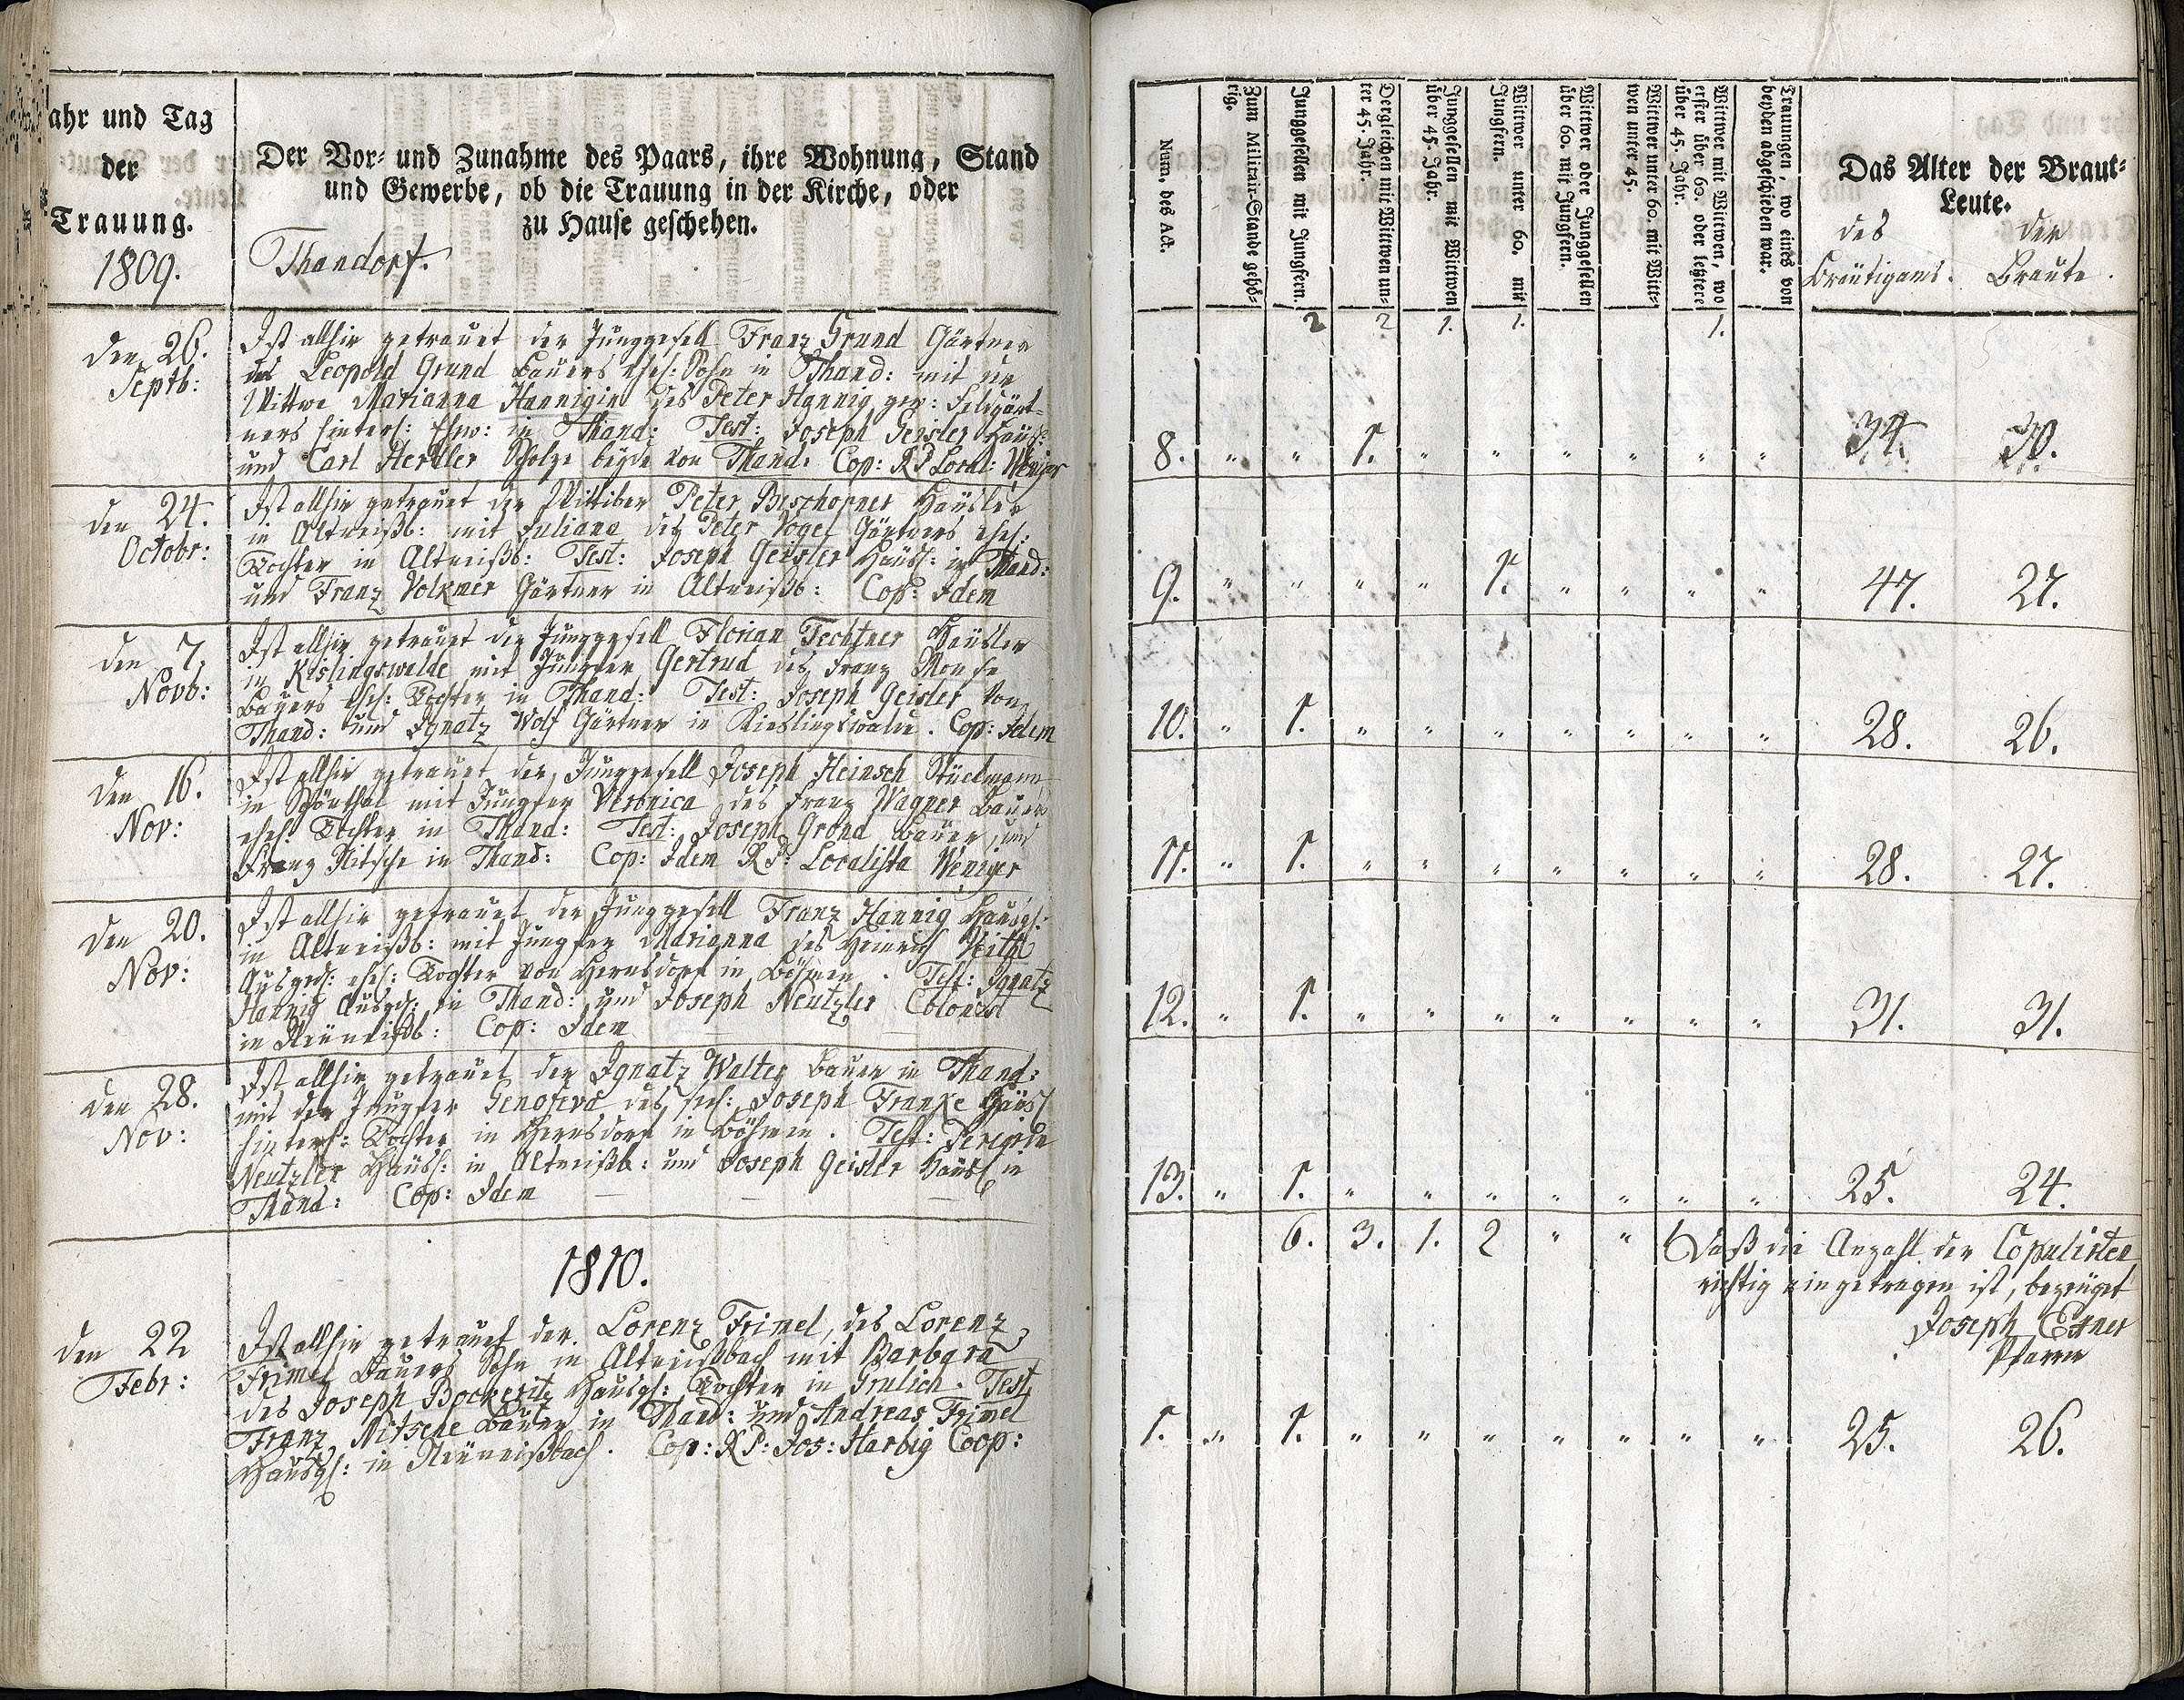 Jahr und Tag
der
Trauung.
1809.
Der Vor- und Zunahme des Paars, ihre Wohnung, Stand
und Gewerbe, ob die Trauung in der Kirche, oder
zu Hause geschehen.
Thandorf.
den 26.
Septb:
Ist allhie getrauet der Junggesell Franz Grund Gärtner
des Leopold Grund Bauers ehel: Sohn in Thand: mit der
Wittwe Marianna Hannigin des Peter Hannig gew: Feldgärt-
ners hinterl: Ehw: in Thand: Test: Joseph Geisler Häusl:
und Carl Hertler Scholze beyde von Thand: Cop: RP Local: Weniger
den 24.
Octobr:
Ist allhie getrauet der Wittiber Peter Beschorner Häusler
in Altneißb: mit Juliana des Peter Vogel Gärtners ehel:
Tochter in Altneißb: Test: Joseph Geisler Häusl: in Thand:
und Franz Volkmer Gärtner in Altneißb: Cop: Idem
den 7.
Novb:
Ist allhie getrauet der Junggesell Florian Techtner Häusler
in Kislingswalde mit Jungfer Gertrud des Franz
Bauers ehel: Tochter in Thand: Test: Joseph Geisler von
Thand: und Ignatz Wolf Gärtner in Kieslingswalde. Cop: Idem
den 16.
Nov:
Ist allhie getrauet der Junggesell Joseph Heinsch Stückmann
in Schönthal mit Jungfer Veronica des Franz Wagner Bauers
ehel: Tochter in Thand: Test: Joseph Grond Bauer, und
Franz Nitsche in Thand: Cop: Idem RP: Localista Weniger
den 20.
Nov:
Ist allhie getrauet der Junggesell Franz Hannig Hausgl:
in Altneißb: mit Jungfer Marianna des Heinrich Veith
Ausged: ehel: Tochter von Hernsdorf in Böhmen. Test: Ignatz
Hannig Ausged: in Thand: und Joseph Neutzler Colonist
in Neuneißb: Cop: Idem
den 28.
Nov:
Ist allhie getrauet der Ignatz Walter Bauer in Thand:
mit der Jungfer Genofeva des sel: Joseph Franke Häusl
hinterl: Tochter in Hernsdorf in Böhmen. Test: Peregrin
Neutzler Häusl: in Altneißb: und Joseph Geisler Häusl in
Thand: Cop: Idem
1810.
den 22
Febr:
Ist allhie getrauet der Lorenz Frimel, des Lorenz
Frimel Bauers Sohn in Altneißbach mit Barbara
des Joseph Bockesitz Hausgl: Tochter in Grulich. Test
Franz Nitsche Bauer in Thand: und Andreas Frimel
Hausgl: in Neuneißbach. Cop: RP: Jos: Harbig Coop:
Num. des Act.
Zum Militair-Stande gehö-
rig.
Junggesellen mit Jungfern.
Dergleichen mit Wittwen un-
ter 45. Jahr.
Junggesellen mit Wittwen
über 45. Jahr.
Wittwer unter 60. mit
Jungfern.
Wittwer oder Junggesellen
über 60. mit Jungfern.
Wittwer unter 60. mit Witt-
wen unter 45.
Wittwer mit Wittwen, wo
erster über 60. oder letztere
über 45. Jahr.
Trauungen, wo eines von
beyden abgeschieden war.
Das Alter der Braut-
Leute.
des der
Bräutigams. Braute.
2 2 1. 1. 1.
8. " " 1. " " " " " " 34. 30.
9. " " " " 1. " " " " 47. 27.
10. " 1. " " " " " " " 28. 26.
11. " 1. " " " " " " " 28. 27.
12. " 1. " " " " " " " 31. 31.
13. " 1. " " " " " " " 25. 24.
6. 3. 1. 2 " " 1 Daß die Anzahl der Copulirten
richtig eingetragen ist, bezeuget
Joseph Exner
Pfarrer
1. " 1. " " " " " " " 25. 26.